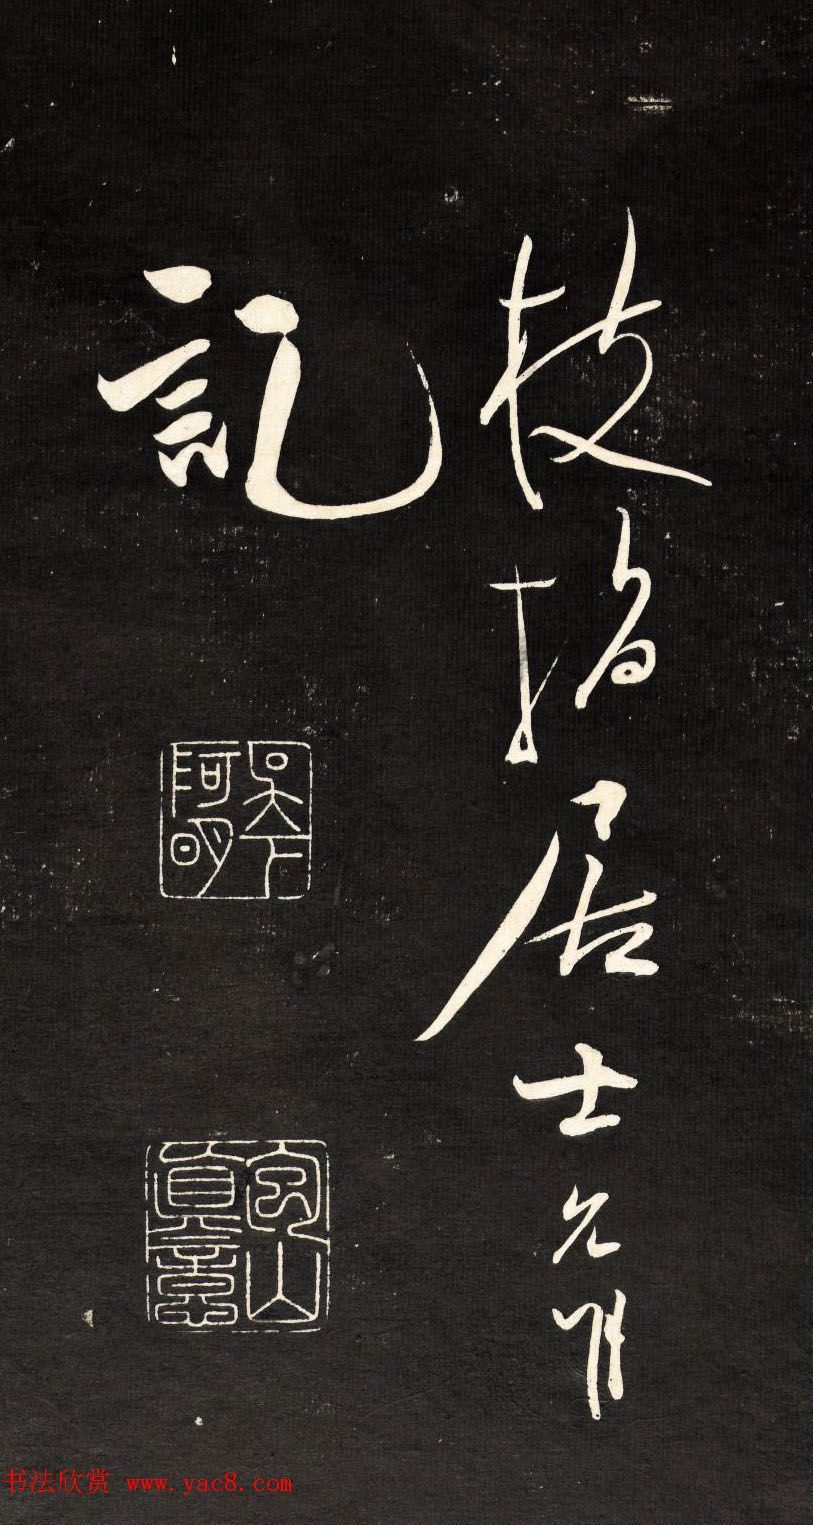 枝指居士允明
記
吳下
阿明
书法欣赏 www.yac8.com